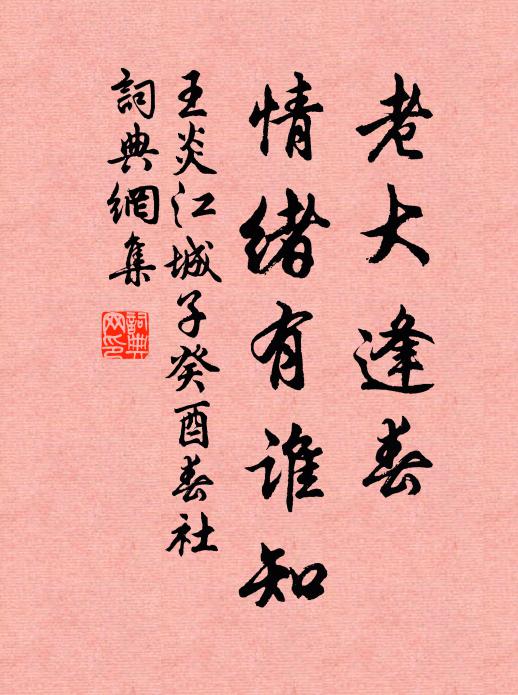 老大逢春
情緒有誰知
王炎江城子癸酉春社
詞典網集
詞典
网印